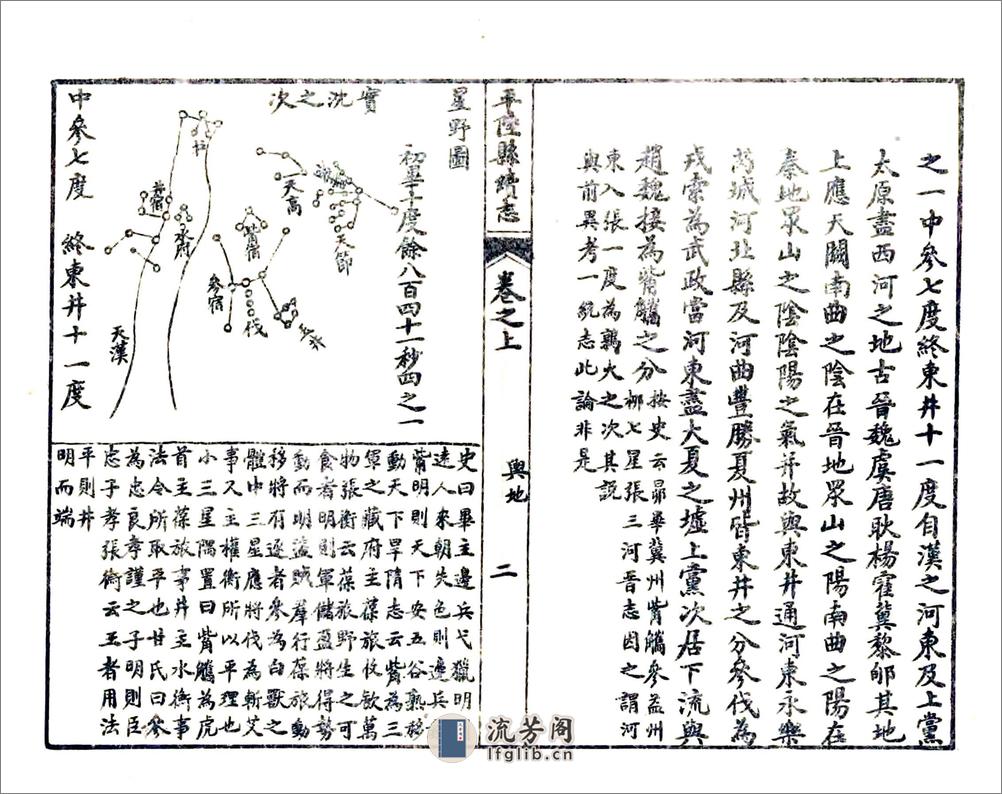 之一中參七度終東井十一度自漢之河東及上黨
太原盡西河之地古晉魏虞唐耿楊霍冀黎郇其地
上應天關南曲之陰在晉地眾山之陽南曲之陽在
秦地眾山之陰陰陽之氣并故與東井通河東永樂
芮城河北縣及河曲豐勝夏州皆東井之分參伐為
戎索為武政當河東盡大夏之墟上黨次居下流與
趙魏接為觜觿之分按史云昴畢冀州觜觿參益州
東入張一度為鶉火之次其說
柳七星張三河晉志因之謂河
與前異考一統志此論非是
平陸縣續志
卷之上
輿地
二
星野圖
實沈之次
初畢十度餘八百四十一秒四之一
中參七度
終東井十一度
天高
天節
觜宿
參宿
伐
井宿
水府
天漢
史曰畢主邊兵弋獵明
遠人來朝失色則邊兵
觜明則天下安五谷熟移
動天下旱隋志云觜為三
軍之藏府主葆旅收歛萬
物張衡云葆旅野生之可
食者明則軍儲盈將得勢
動而明盜賊羣行葆旅動
移將有逐者參為白獸之
體中三星應將伐為斬艾
事又主權衡所以平理也
小三星隅置曰觜觿為虎
首主葆旅事井主水衡事
法令所取平也甘氏曰參
為忠良孝謹之子明則臣
忠子孝張衡云王者用法
平則井
明而端
流芳阁
lfglib.cn